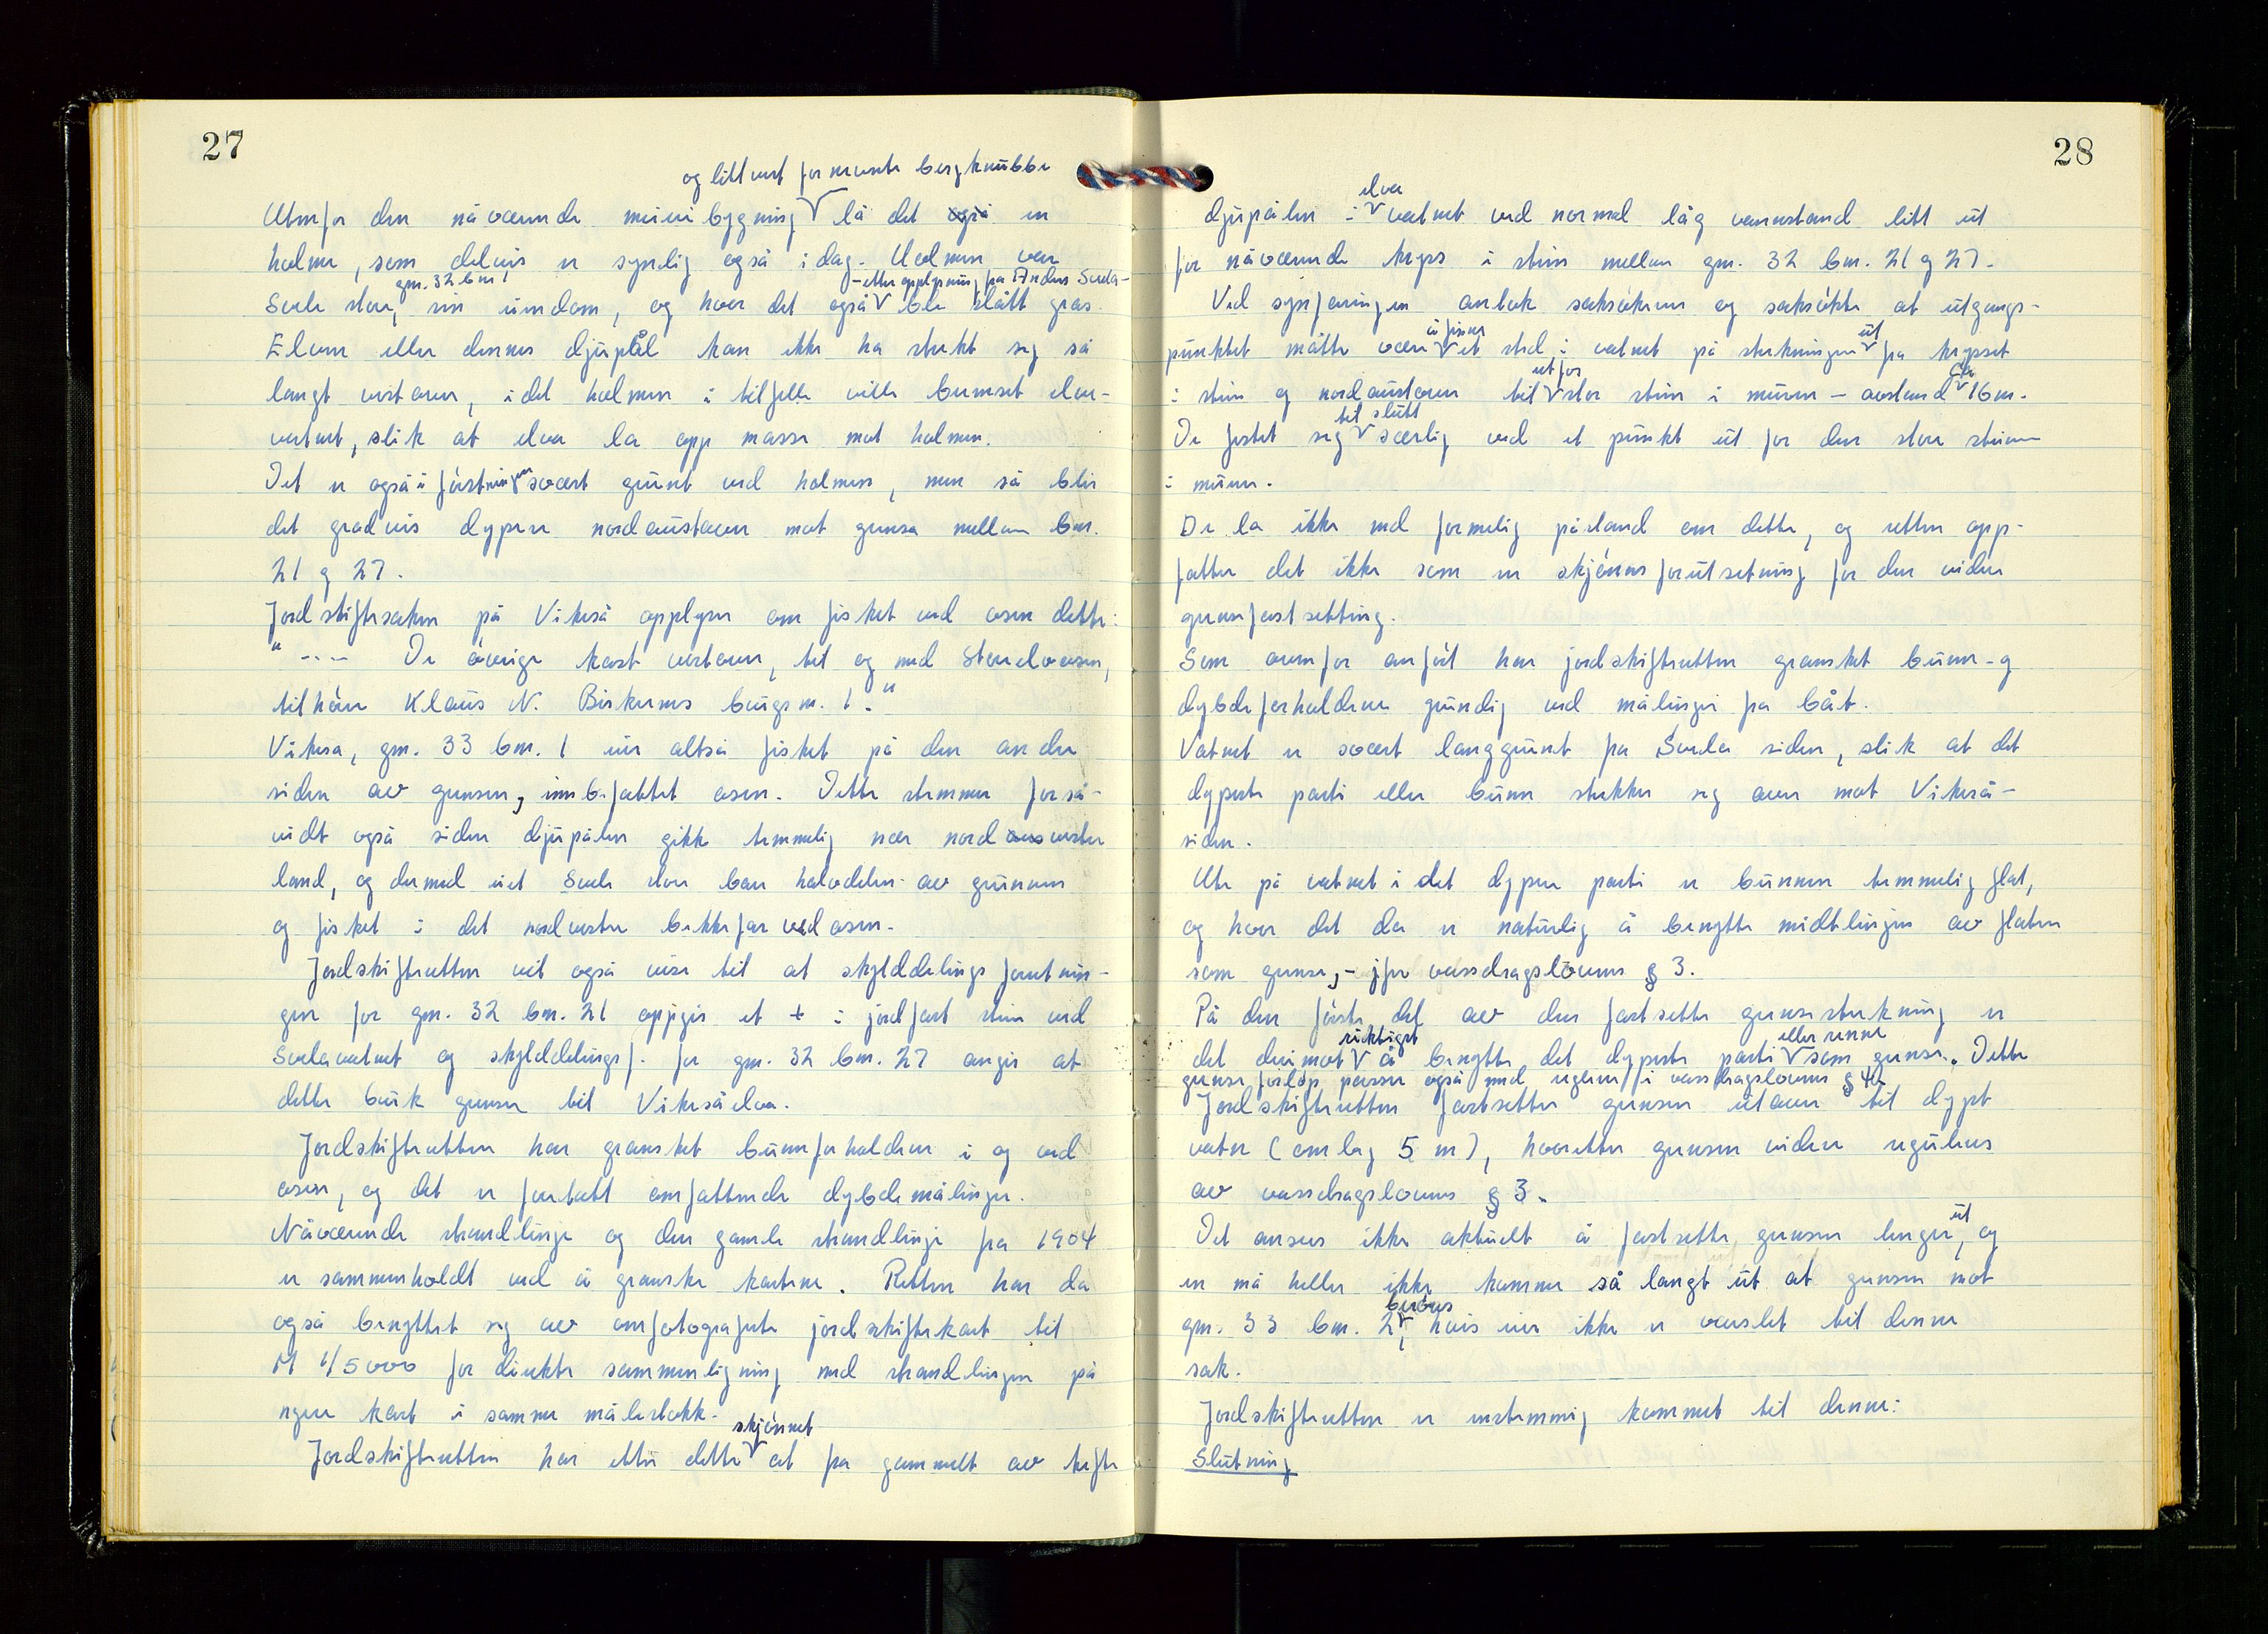 27
og litt vest for nevnte bergknubbe
Utenfor den nåværende meieribygning lå det også en
holme, som delvis er synlig også i dag. Holmen var
gm. 32 bm 1 - etter opplysning fra Anders Svela -
Svela store, sin eiendom, og hvor det også ble slått gras.
Elven eller dennes djupål kan ikke ha strekt seg så
langt vestover, i det holmen i tilfelle ville bremset elve-
vatnet, slik at elva la opp masse mot holmen.
Det er også i førstningen svært grunt ved holmen, men så blir
det gradvis dypere nordaustover mot grensa mellom bm.
21 og 27.
Jordskiftesaken på Vikeså opplyser om fisket ved osen dette:
" ---- De øvrige kast vestover, til og med Storelvosen,
tilhører Klaus N. Birkrems brugsn. 1."
Vikesa, gm. 33 bm. 1 eier altså fisket på den andre
siden av grensen, innbefattet osen. Dette stemmer forså-
vidt også siden djupålen gikk temmelig nær nord aus vestre
land, og dermed eiet Svela store bare halvdelen av grunnen
og fisket i det nordvestre bekkefar ved osen.
Jordskifteretten vil også vise til at skylddelings forretnin-
gen for gm. 32 bm. 21 oppgir et + i jordfast stein ved
Svelavatnet og skylddelingsf. for gm. 32 bm. 27 angir at
dette bruk grenser til Vikesåelva.
Jordskifteretten har gransket bunnforholdene i og ved
osen, og det er foretatt omfattende dybdemålinger.
Nåværende strandlinje og den gamle strandlinje fra 1904
er sammenholdt ved å granske kartene. Retten har da
også benyttet seg av omfotograferte jordskiftekart til
M 1/5000 for direkte sammenligning med strandlinjen på
nyere kart i samme målestokk.
skjønnet
Jordskifteretten har etter dette at fra gammelt av krysste
28
elva
djupålen i vatnet ved normal låg vannstand litt ut
for nåværende kryss i stein mellom gm. 32 bm. 21 og 27.
Ved synfaringen antok saksøkeren og saksøkte at utgangs-
å finne ut
punktet måtte være et sted i vatnet på strekningen fra krysset
ut for ca
i stein og nordaustover til stor stein i muren - avstand 16m.
til slutt
De festet seg særlig ved et punkt ut for den store steinen
i muren.
De la ikke ned formelig påstand om dette, og retten opp-
fatter det ikke som en skjønns forutsetning for den videre
grensefastsetting.
Som ovenfor anført har jordskifteretten gransket bunn- og
dybdeforholdene grundig ved målinger fra båt.
Vatnet er svært langgrunt fra Svela siden, slik at det
dypeste parti eller bunn strekker seg over mot Vikeså-
siden.
Ute på vatnet i det dypere parti er bunnen temmelig flat,
og hvor det da er naturlig å benytte midtlinjen av flaten
som grense,- jfr vassdragslovens § 3.
På den første del av den fastsette grensestrekning er
riktigst eller renne
det derimot å benytte det dypeste parti som grense. Dette
grense forløp passer også med reglene i vassdragslovens § 4b
Jordskifteretten fastsetter grensen utover til dypt
vatn (omlag 5 m), hvoretter grensen videre reguleres
av vassdragslovens § 3.
ut
Det anses ikke aktuelt å fastsette grensen lenger, og
en må heller ikke komme så langt ut at grensen mot
berøres
gm. 33 bm. 2, hvis eier ikke er varslet til denne
sak.
Jordskifteretten er enstemmig kommet til denne:
Slutning